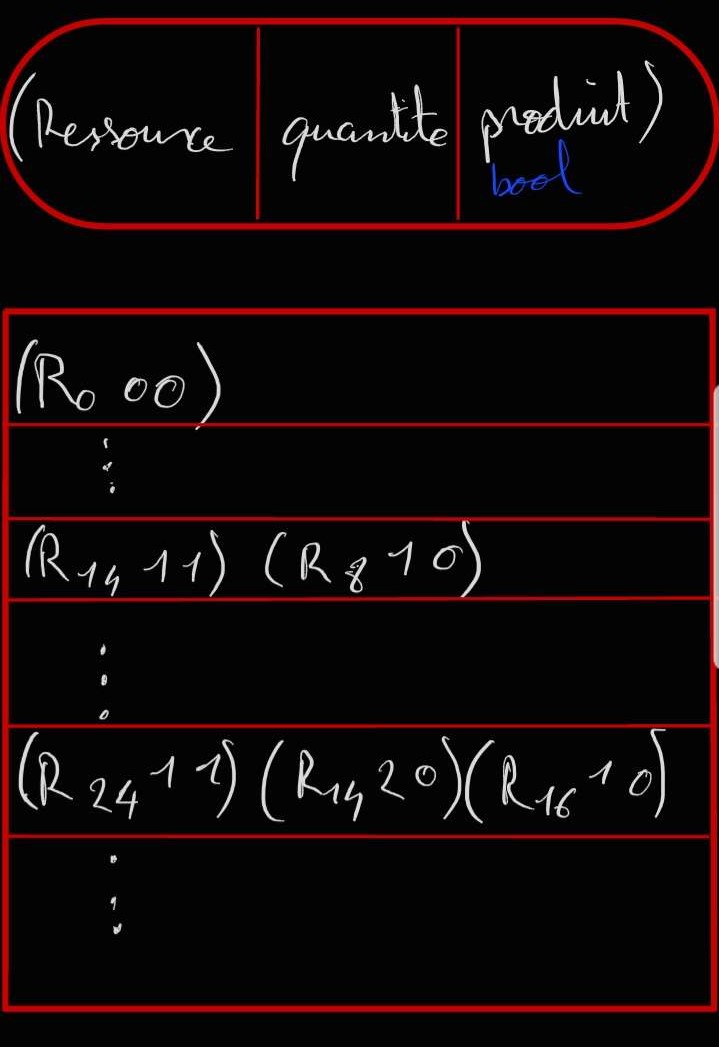 (Ressource quantite produit)
bool
(R0 00)
(R14 11) (R8 10)
(R24 11) (R14 20) (R16 10)